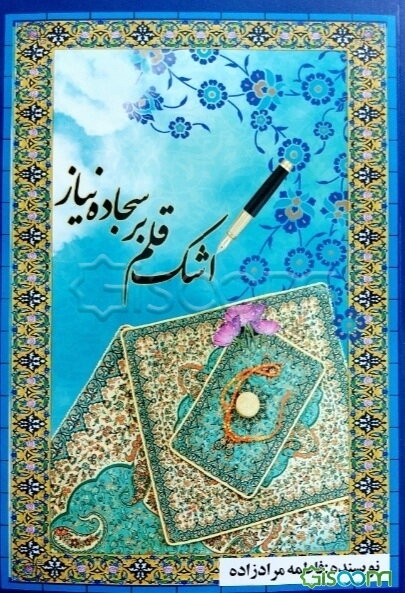 اشک قلم بر سجاده نیاز
Gisoom
نویسنده: فاطمه مرادزاده
Gisoom